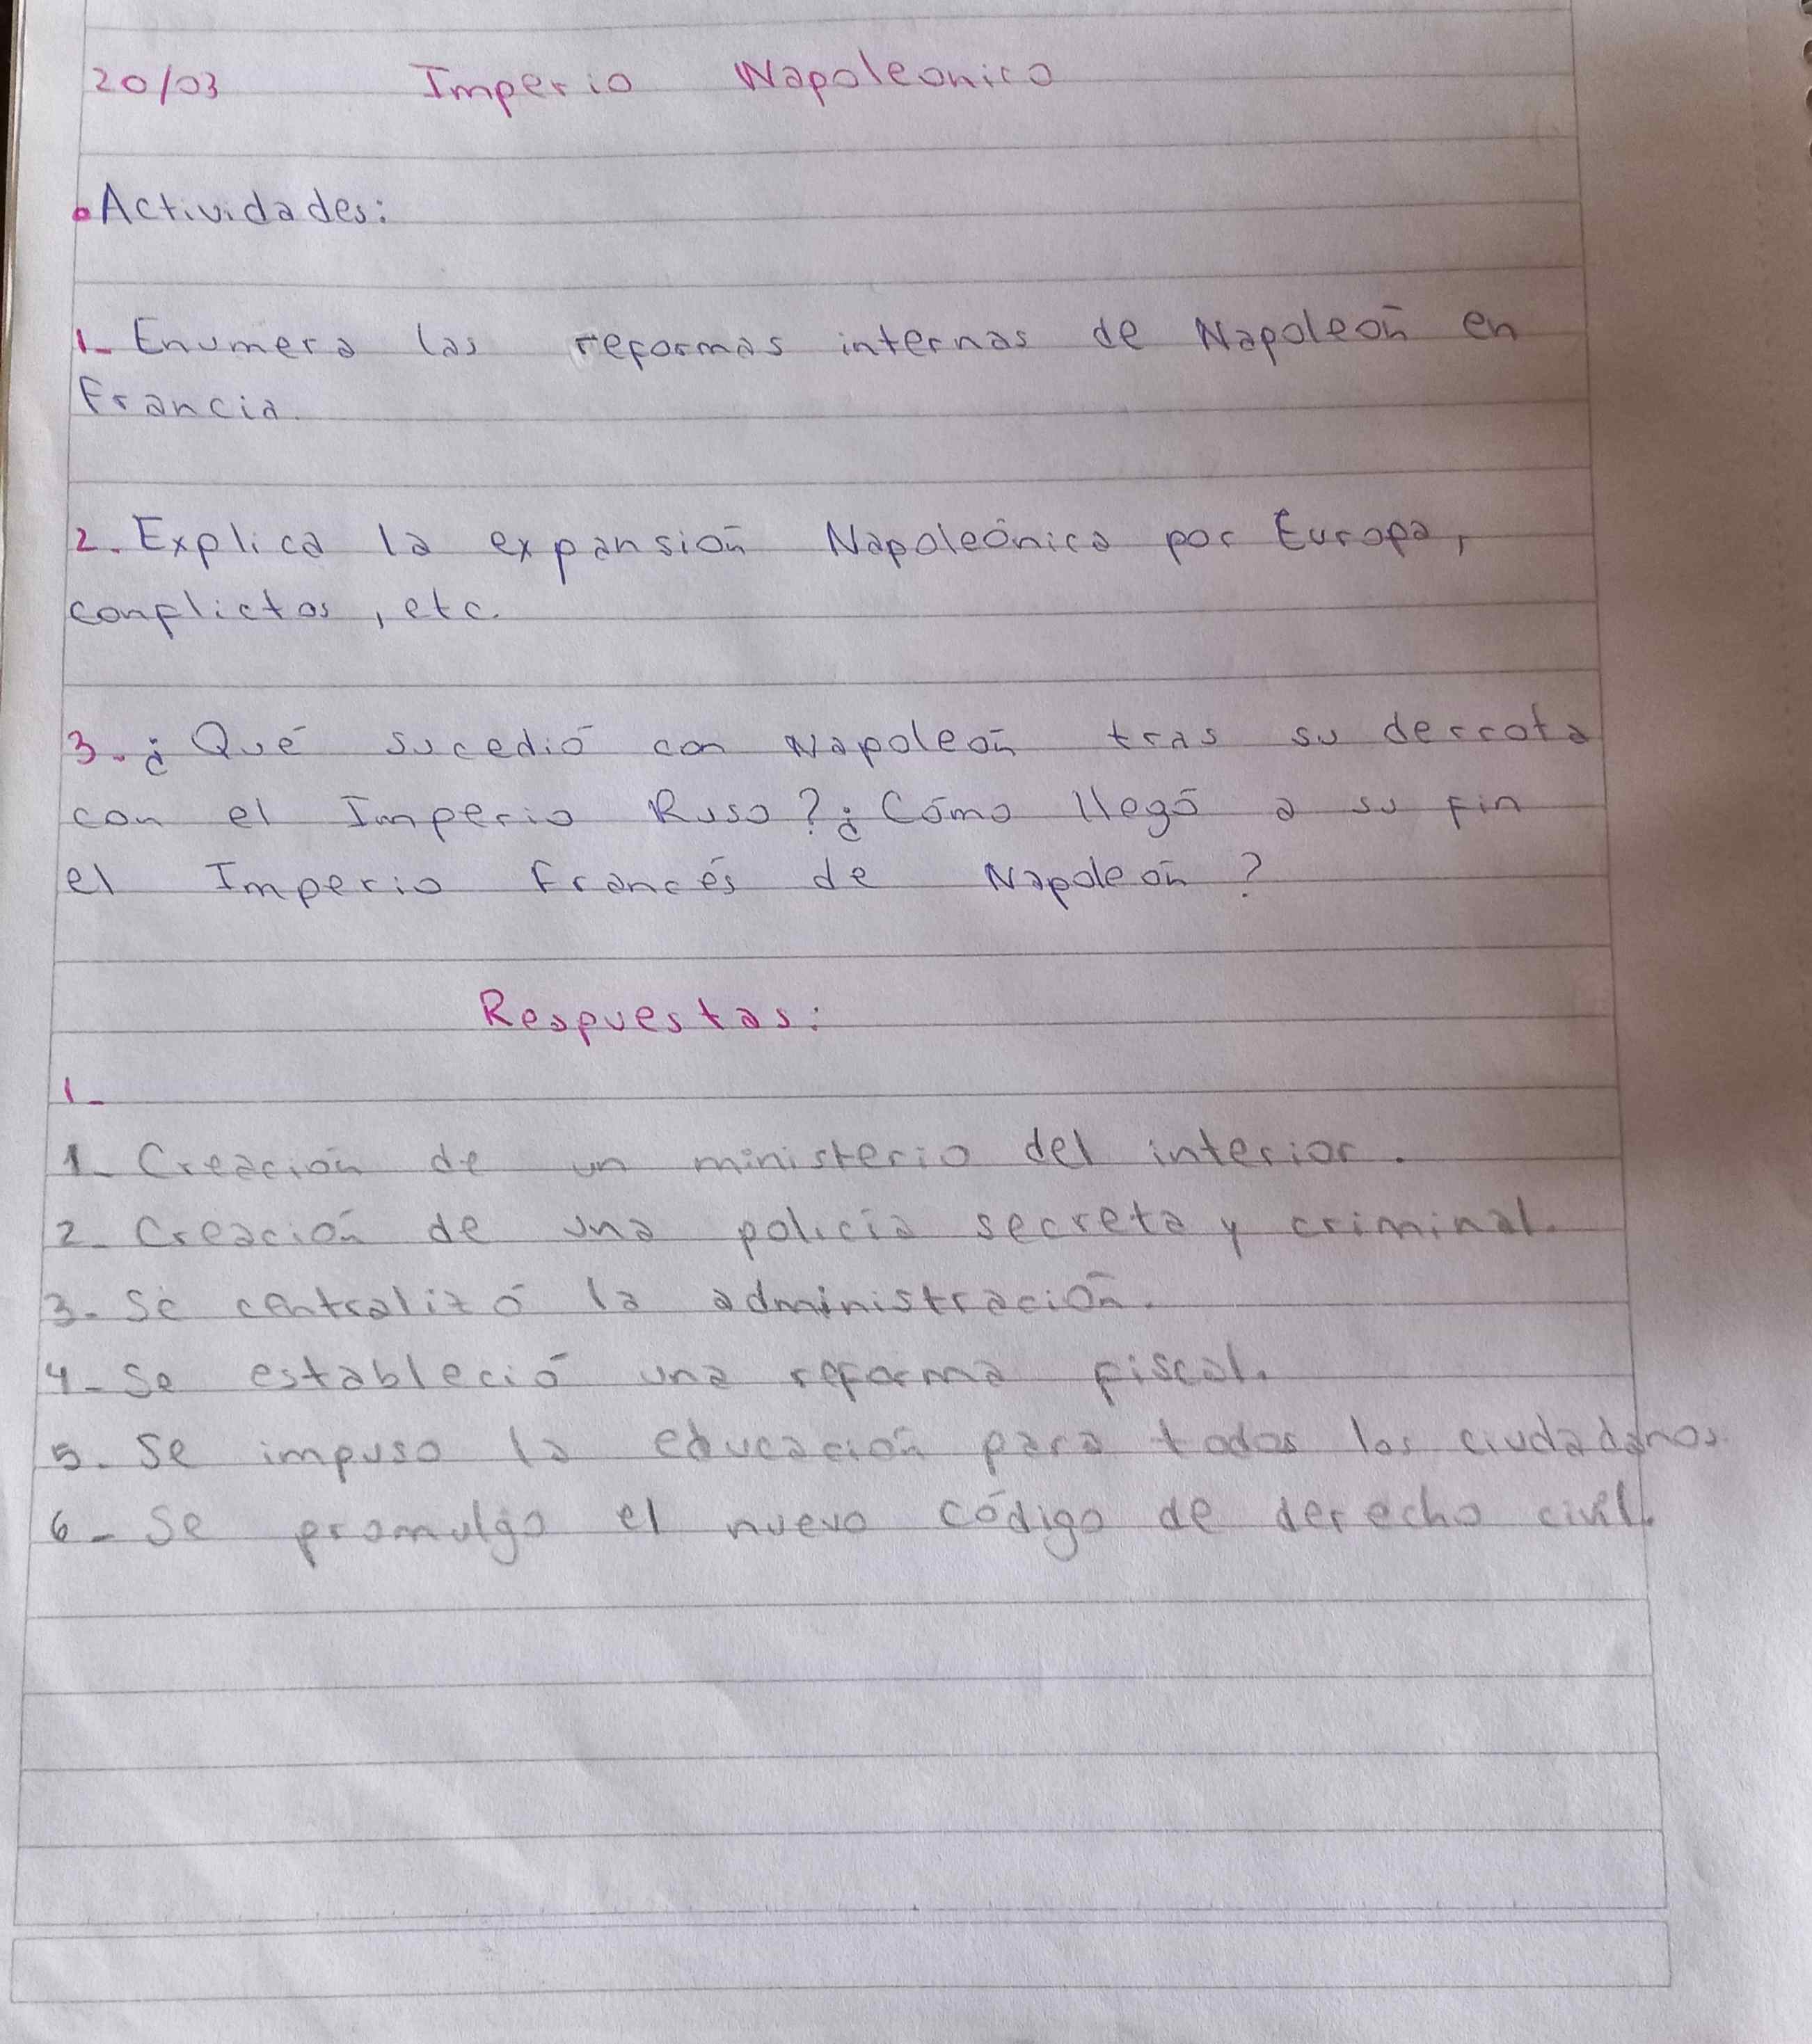 20/03 Imperio Napoleonico
Actividades:
1- Enumera las reformas internas de Napoleón en
Francia.
2. Explica la expansión Napoleónica por Europa,
conflictos, etc.
3. ¿Qué sucedió con Napoleón tras su derrota
con el Imperio Ruso? ¿Cómo llegó a su fin
el Imperio Francés de Napoleón?
Respuestas:
1-
1- Creación de un ministerio del interior.
2- Creación de una policía secreta y criminal.
3- Se centralizó la administración.
4- Se estableció una reforma fiscal.
5- Se impuso la educación para todos los ciudadanos
6- Se promulgo el nuevo código de derecho civil.